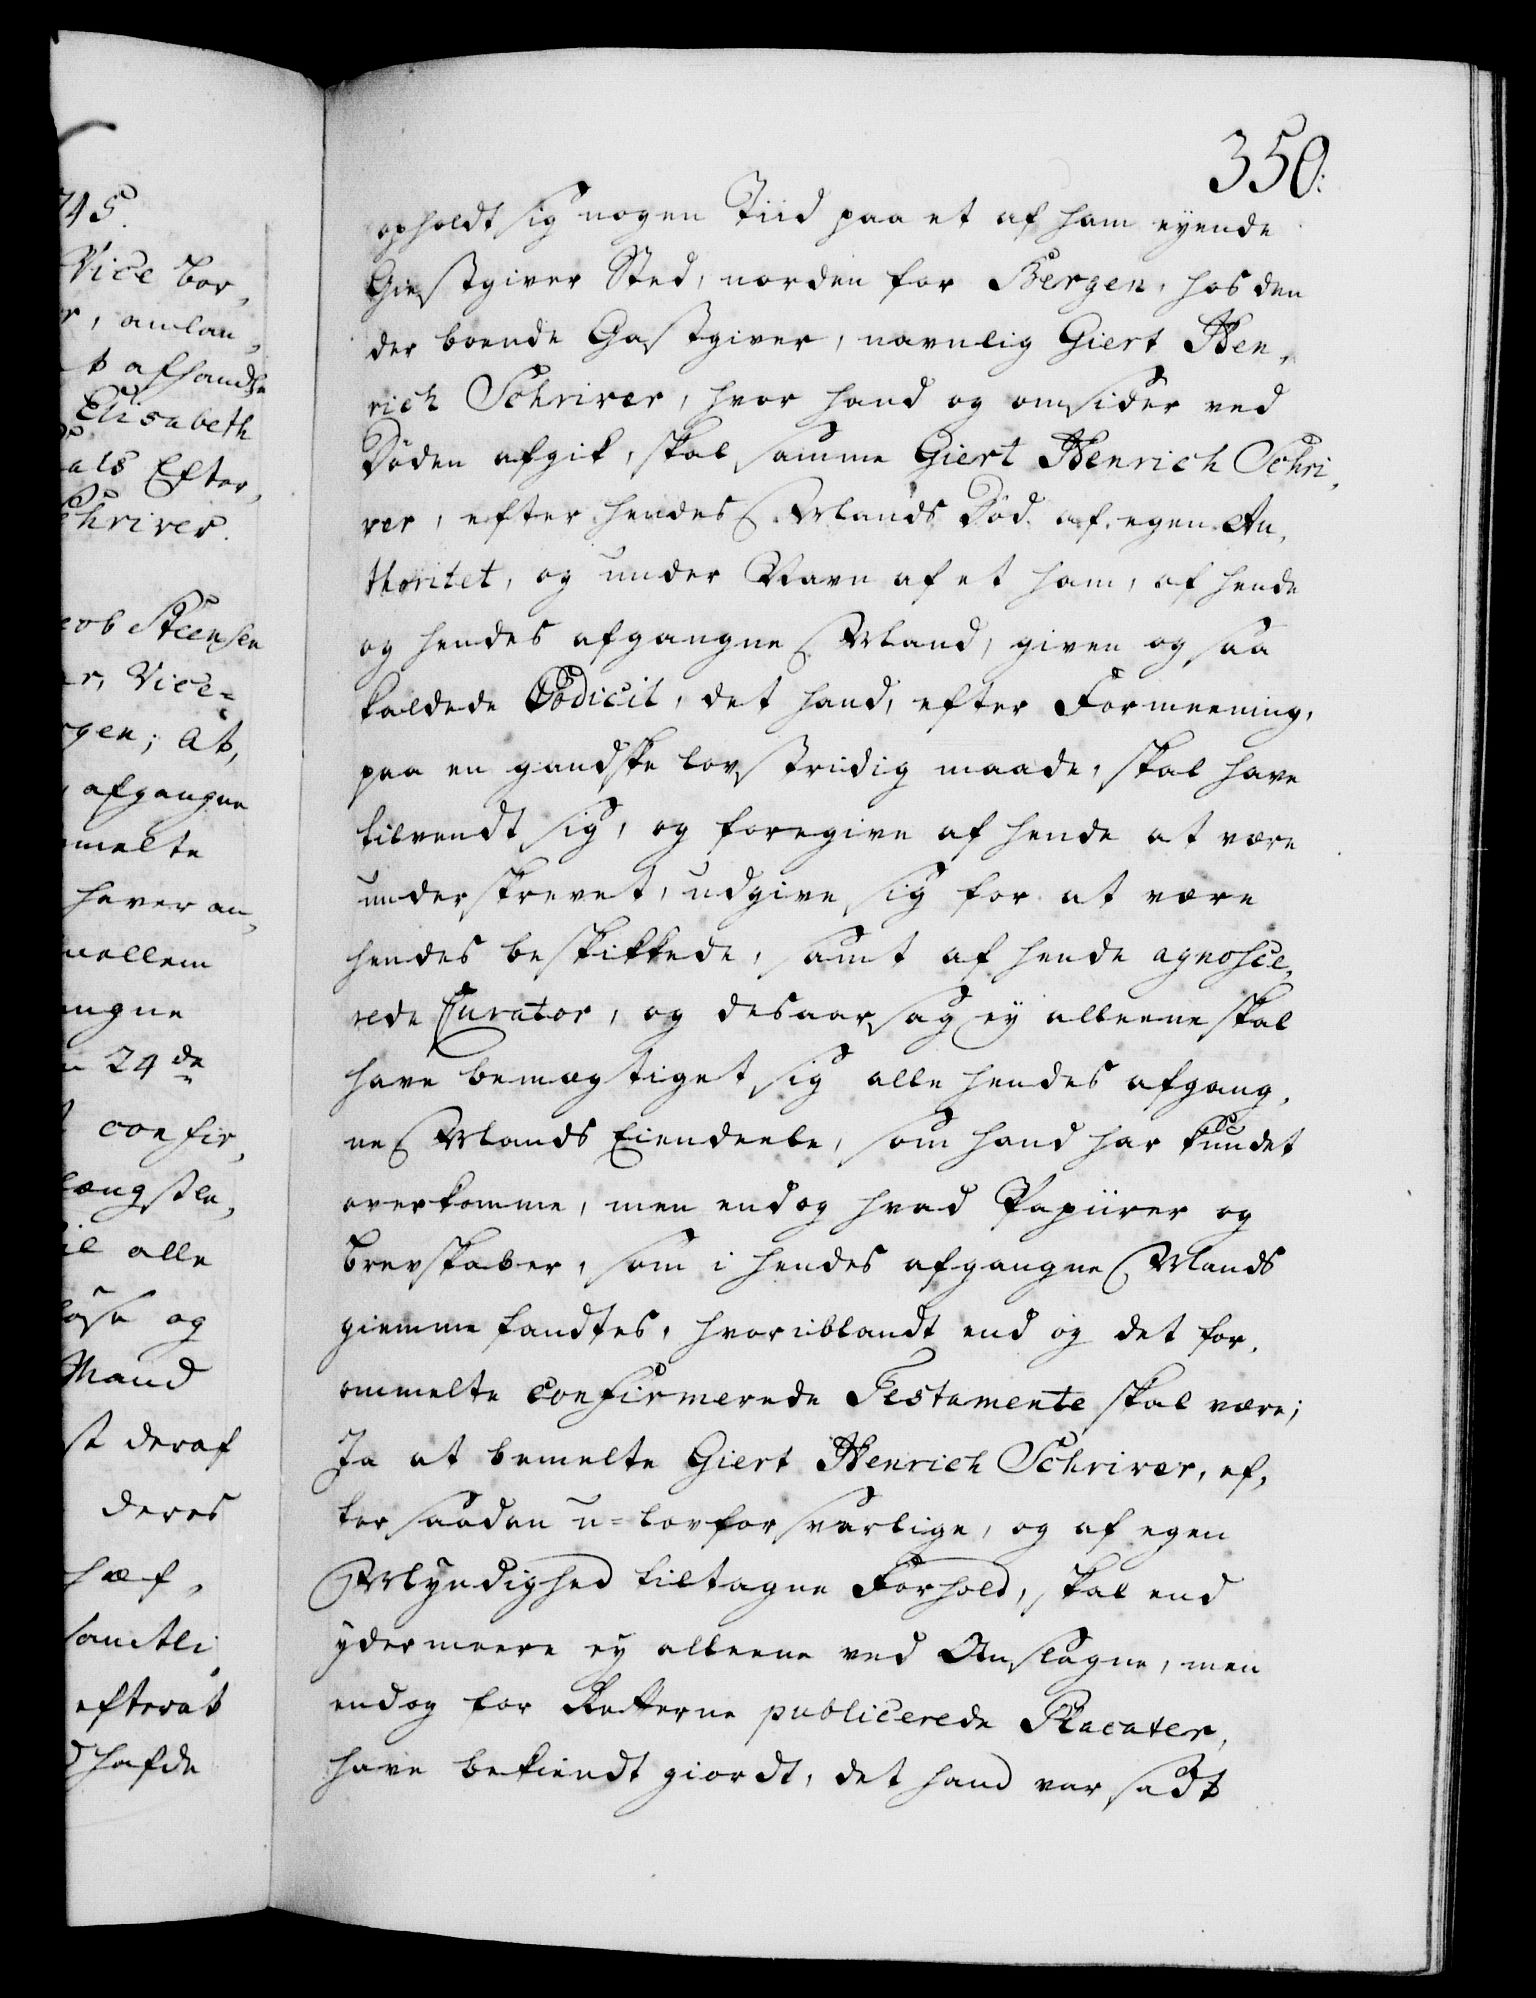 745.
Vice bor,
r, anlan,
t afhandle
Elisabeth
als Efter,
Schriver.
cob Steensen
er, Vice=
rgen; At,
afgangne
melte
haver an,
mellem
angne
24de
confir,
længsele,
il alle
løse og
Mand
st deraf
deres
hæf,
samtli
efterat
hafde
350:
opholdt sig nogen Tiid paa et af ham eyende
Giestgiver Sted, norden for Bergen, hos den
der boende Gastgiver, navnlig Giert Hen,
rich Schriver, hvor hand og omsider ved
Døden afgik, skal samme Giert Henrich Schri,
ver, efter hendes Mands Død af egen Au,
thoritet, og under Navn af et ham, af hende
og hendes afgangne Mand, given og saa
kaldede Codicil, det hand, efter Formeening,
paa en gandske lovstridig maade, skal have
tilvendt sig, og foregive af hende at være
underskrevet, udgive sig for at være
hendes beskikkede, samt af hende agnosce,
rede Curator, og desaarsag ey alleene skal
have bemægtiget sig alle hendes afgang,
ne Mands Eiendeele, som hand har kundet
overkomme, men endog hvad Papiirer og
brevskaber, som i hendes afgangne Mands
giemme fandtes, hvoriblandt end og det for,
ommelte confirmerede Testamente skal være;
Ja at bemelte Giert Henrich Schriver, ef,
ter saadan u=lovforsvarlige, og af egen
Myndighed tiltagne Forhold, skal end
ydermeere ey alleene ved Anslagne, men
endog for Retterne publicerede Placater,
have bekiendt giordt, det hand var sadt